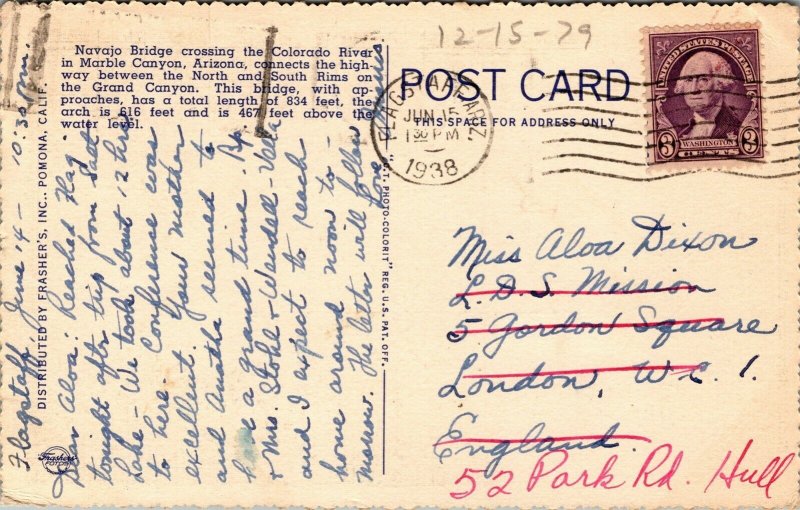 12-15-79
Navajo Bridge crossing the Colorado River
in Marble Canyon, Arizona, connects the high-
way between the North and South Rims on
the Grand Canyon. This bridge, with ap-
proaches, has a total length of 834 feet, the
arch is 616 feet and is 467 feet above the
water level.
DISTRIBUTED BY FRASHER'S, INC., POMONA, CALIF.
Frashers
FOTOS
Flagstaff June 14 - 10:30 p.m.
Dear Aloa: Reached Flag.
tonight after trip from Salt
Lake - We took about 12 hrs
to here. Conference was
excellent. Your mother
and Anetha seemed to
have a grand time. Bp.
& Mrs. Stohl & Wendell - Vela
and I expect to reach
home around noon to-
morrow. Ma letter will follow
Love
"C.T. PHOTO-COLORIT" REG. U.S. PAT. OFF.
POST CARD
THIS SPACE FOR ADDRESS ONLY
FLAGSTAFF, ARIZ.
JUN 15
1 30 PM
1938
UNITED STATES POSTAGE
WASHINGTON
3 CENTS 3
Miss Aloa Dixon
L.D.S. Mission
5 Gordon Square
London, W.C. 1.
England.
52 Park Rd. Hull